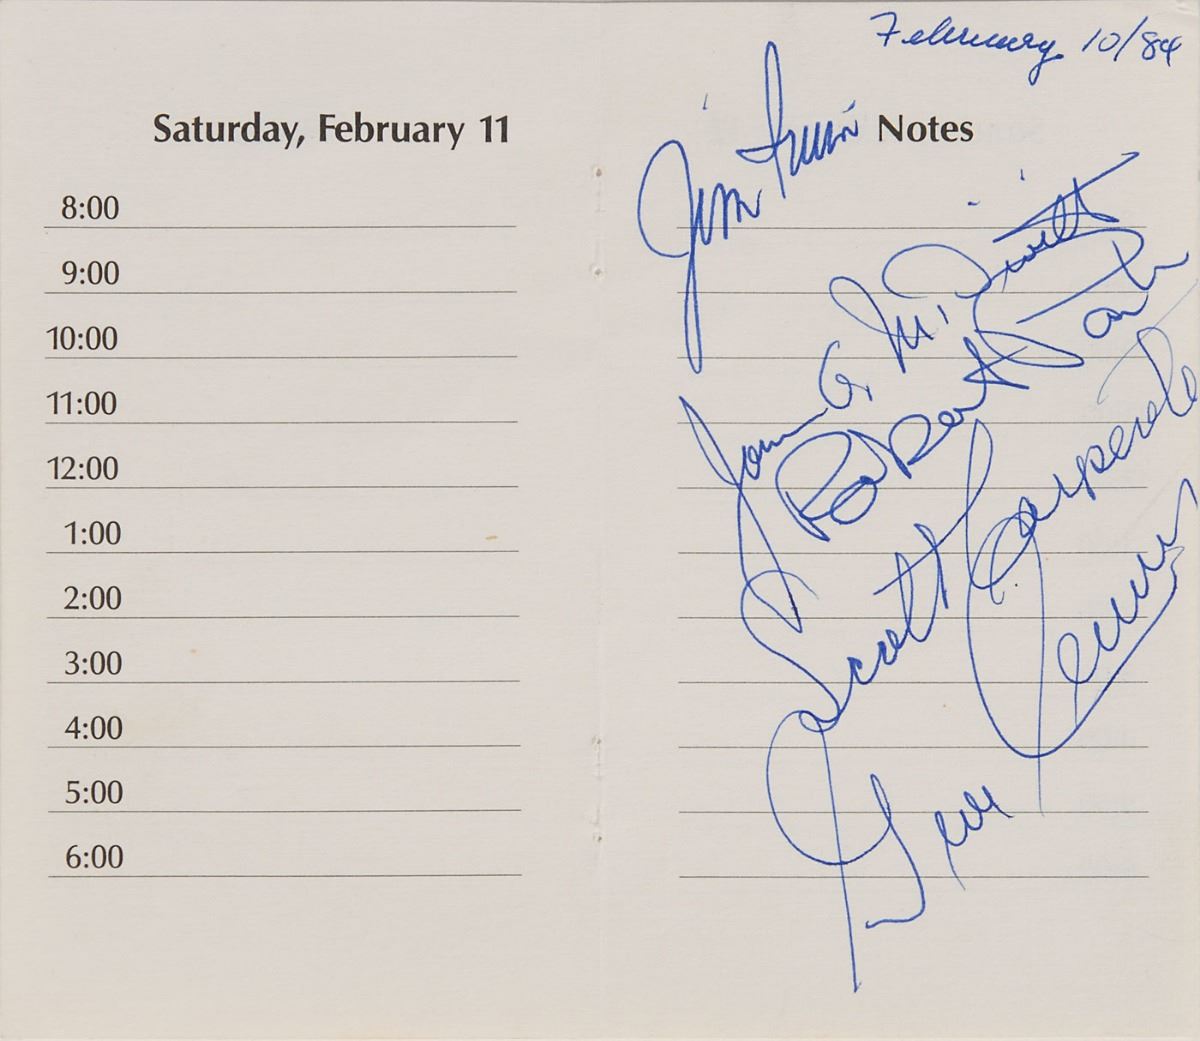 Saturday, February 11
8:00
9:00
10:00
11:00
12:00
1:00
2:00
3:00
4:00
5:00
6:00
February 10/84
Notes
Jim Irwin
James A. McDivitt
Robert
Scott Carpenter
Gene Cernan